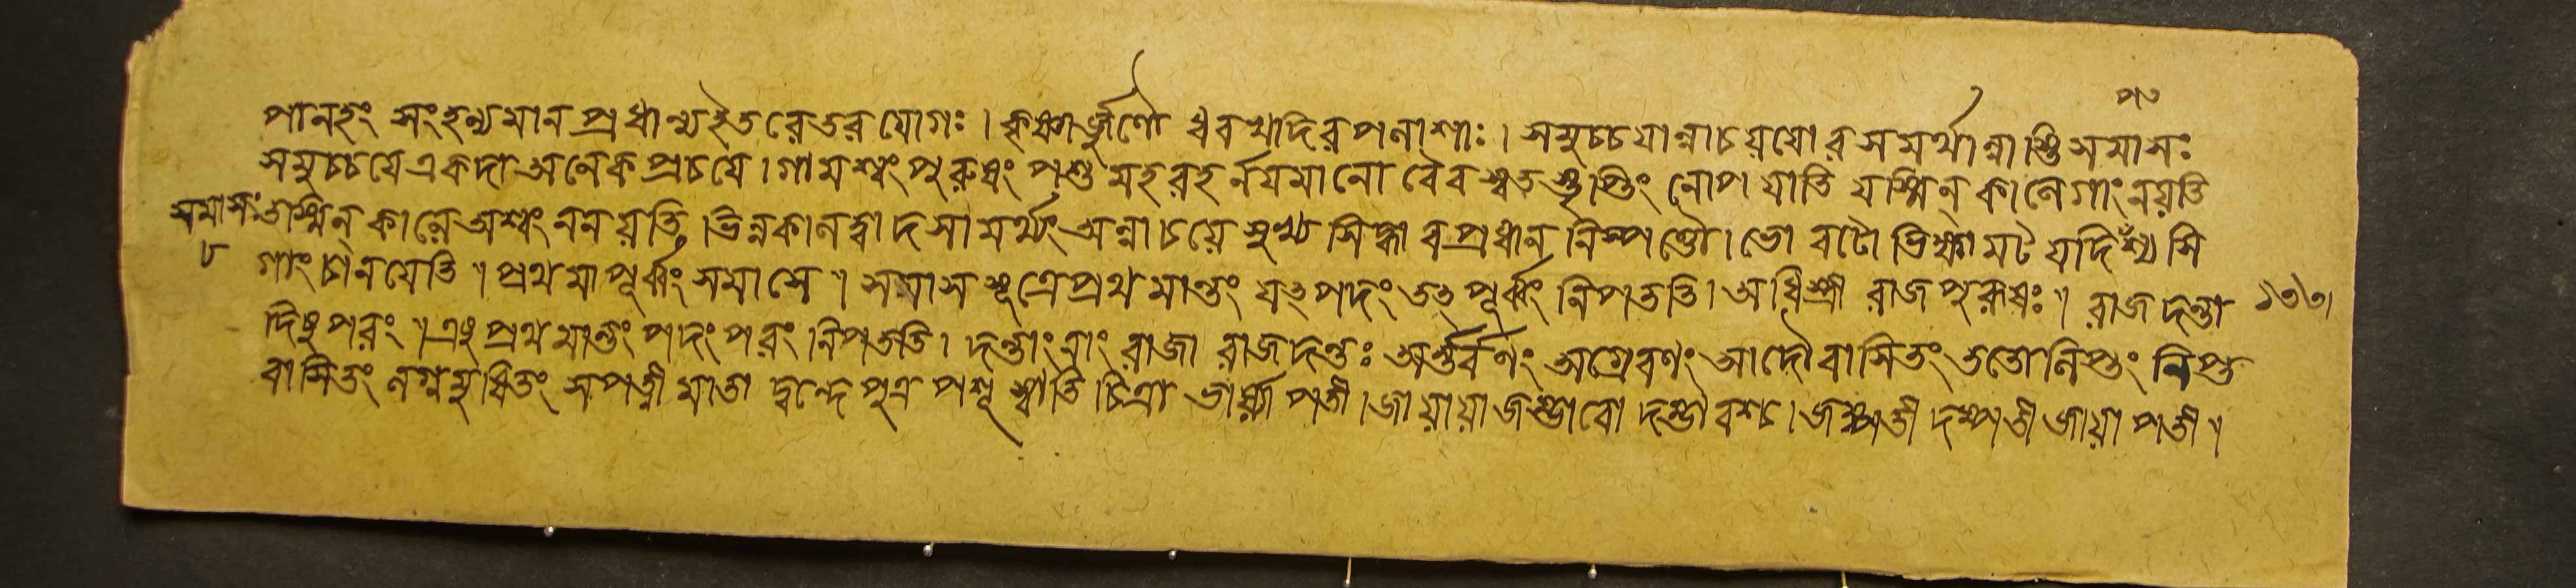 পানহং সংহন্যমান প্রধান্য ইতরেতর যোগঃ । কৃষ্ণার্জ্জুণৌ ধবখাদির পলাশাঃ । সমুচ্চযান্নাচয়যোর সমর্থান্নাস্তি সমাসঃ
সমুচ্চযে একদা অনেক প্রচযে । গামশ্বং পুরুষং পশু মহরহর্নযমানো বৈবস্বত স্তৃপ্তিং নোপ যাতি যস্মিন্ কালে গাং নয়তি
তস্মিন্ কালে অশ্বং ননয়তি । ভিন্নকালত্বাদ সামর্থ্যং অন্নাচয়ে মুখ্য সিদ্ধাব প্রধান নিষ্পত্তৌ । ভো বটো ভিক্ষামট যদি পশ্যসি
গাং চানযেতি ॥ প্রথমা পূর্ব্বং সমাসে ॥ সমাস সূত্রে প্রথমান্তং যৎ পদং তৎ পূর্ব্বং নিপততি । অধিস্ত্রী রাজ পুরুষঃ ॥ রাজ দন্তা
দিষু পরং ॥ এষু প্রথমান্তং পদং পরং নিপততি । দন্তানাং রাজা রাজদন্তঃ অন্তর্বণং অগ্রেবণং আদৌ বাসিতং ততো লিপ্তং লিপ্ত
বাসিতং নগ্নমুষিতং সপত্নী মাতা দ্বন্দে পুত্র পশূ স্বাতি চিত্রা ভার্য্যা পতী । জায়ায়া জম্ভাবো দম্ভাবশ্চ । জম্পতী দম্পতী জায়া পতী ॥
সমাসঃ
৮
১৩৩